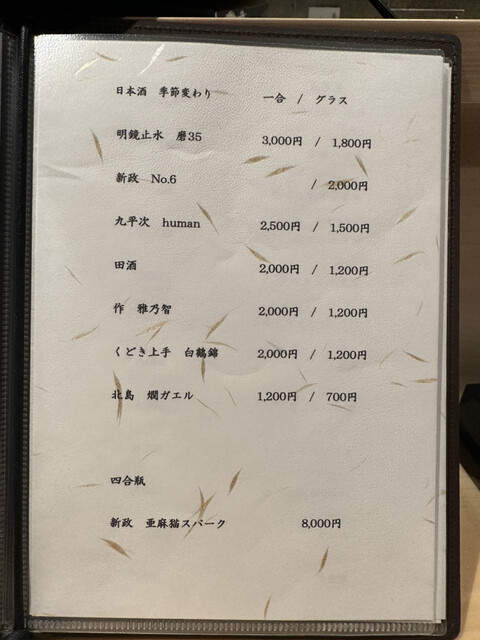 日本酒 季節変わり 一合 / グラス
明鏡止水 磨35 3,000円 / 1,800円
新政 No.6 / 2,000円
九平次 human 2,500円 / 1,500円
田酒 2,000円 / 1,200円
作 雅乃智 2,000円 / 1,200円
くどき上手 白鶴錦 2,000円 / 1,200円
北島 燗ガエル 1,200円 / 700円
四合瓶
新政 亜麻猫スパーク 8,000円